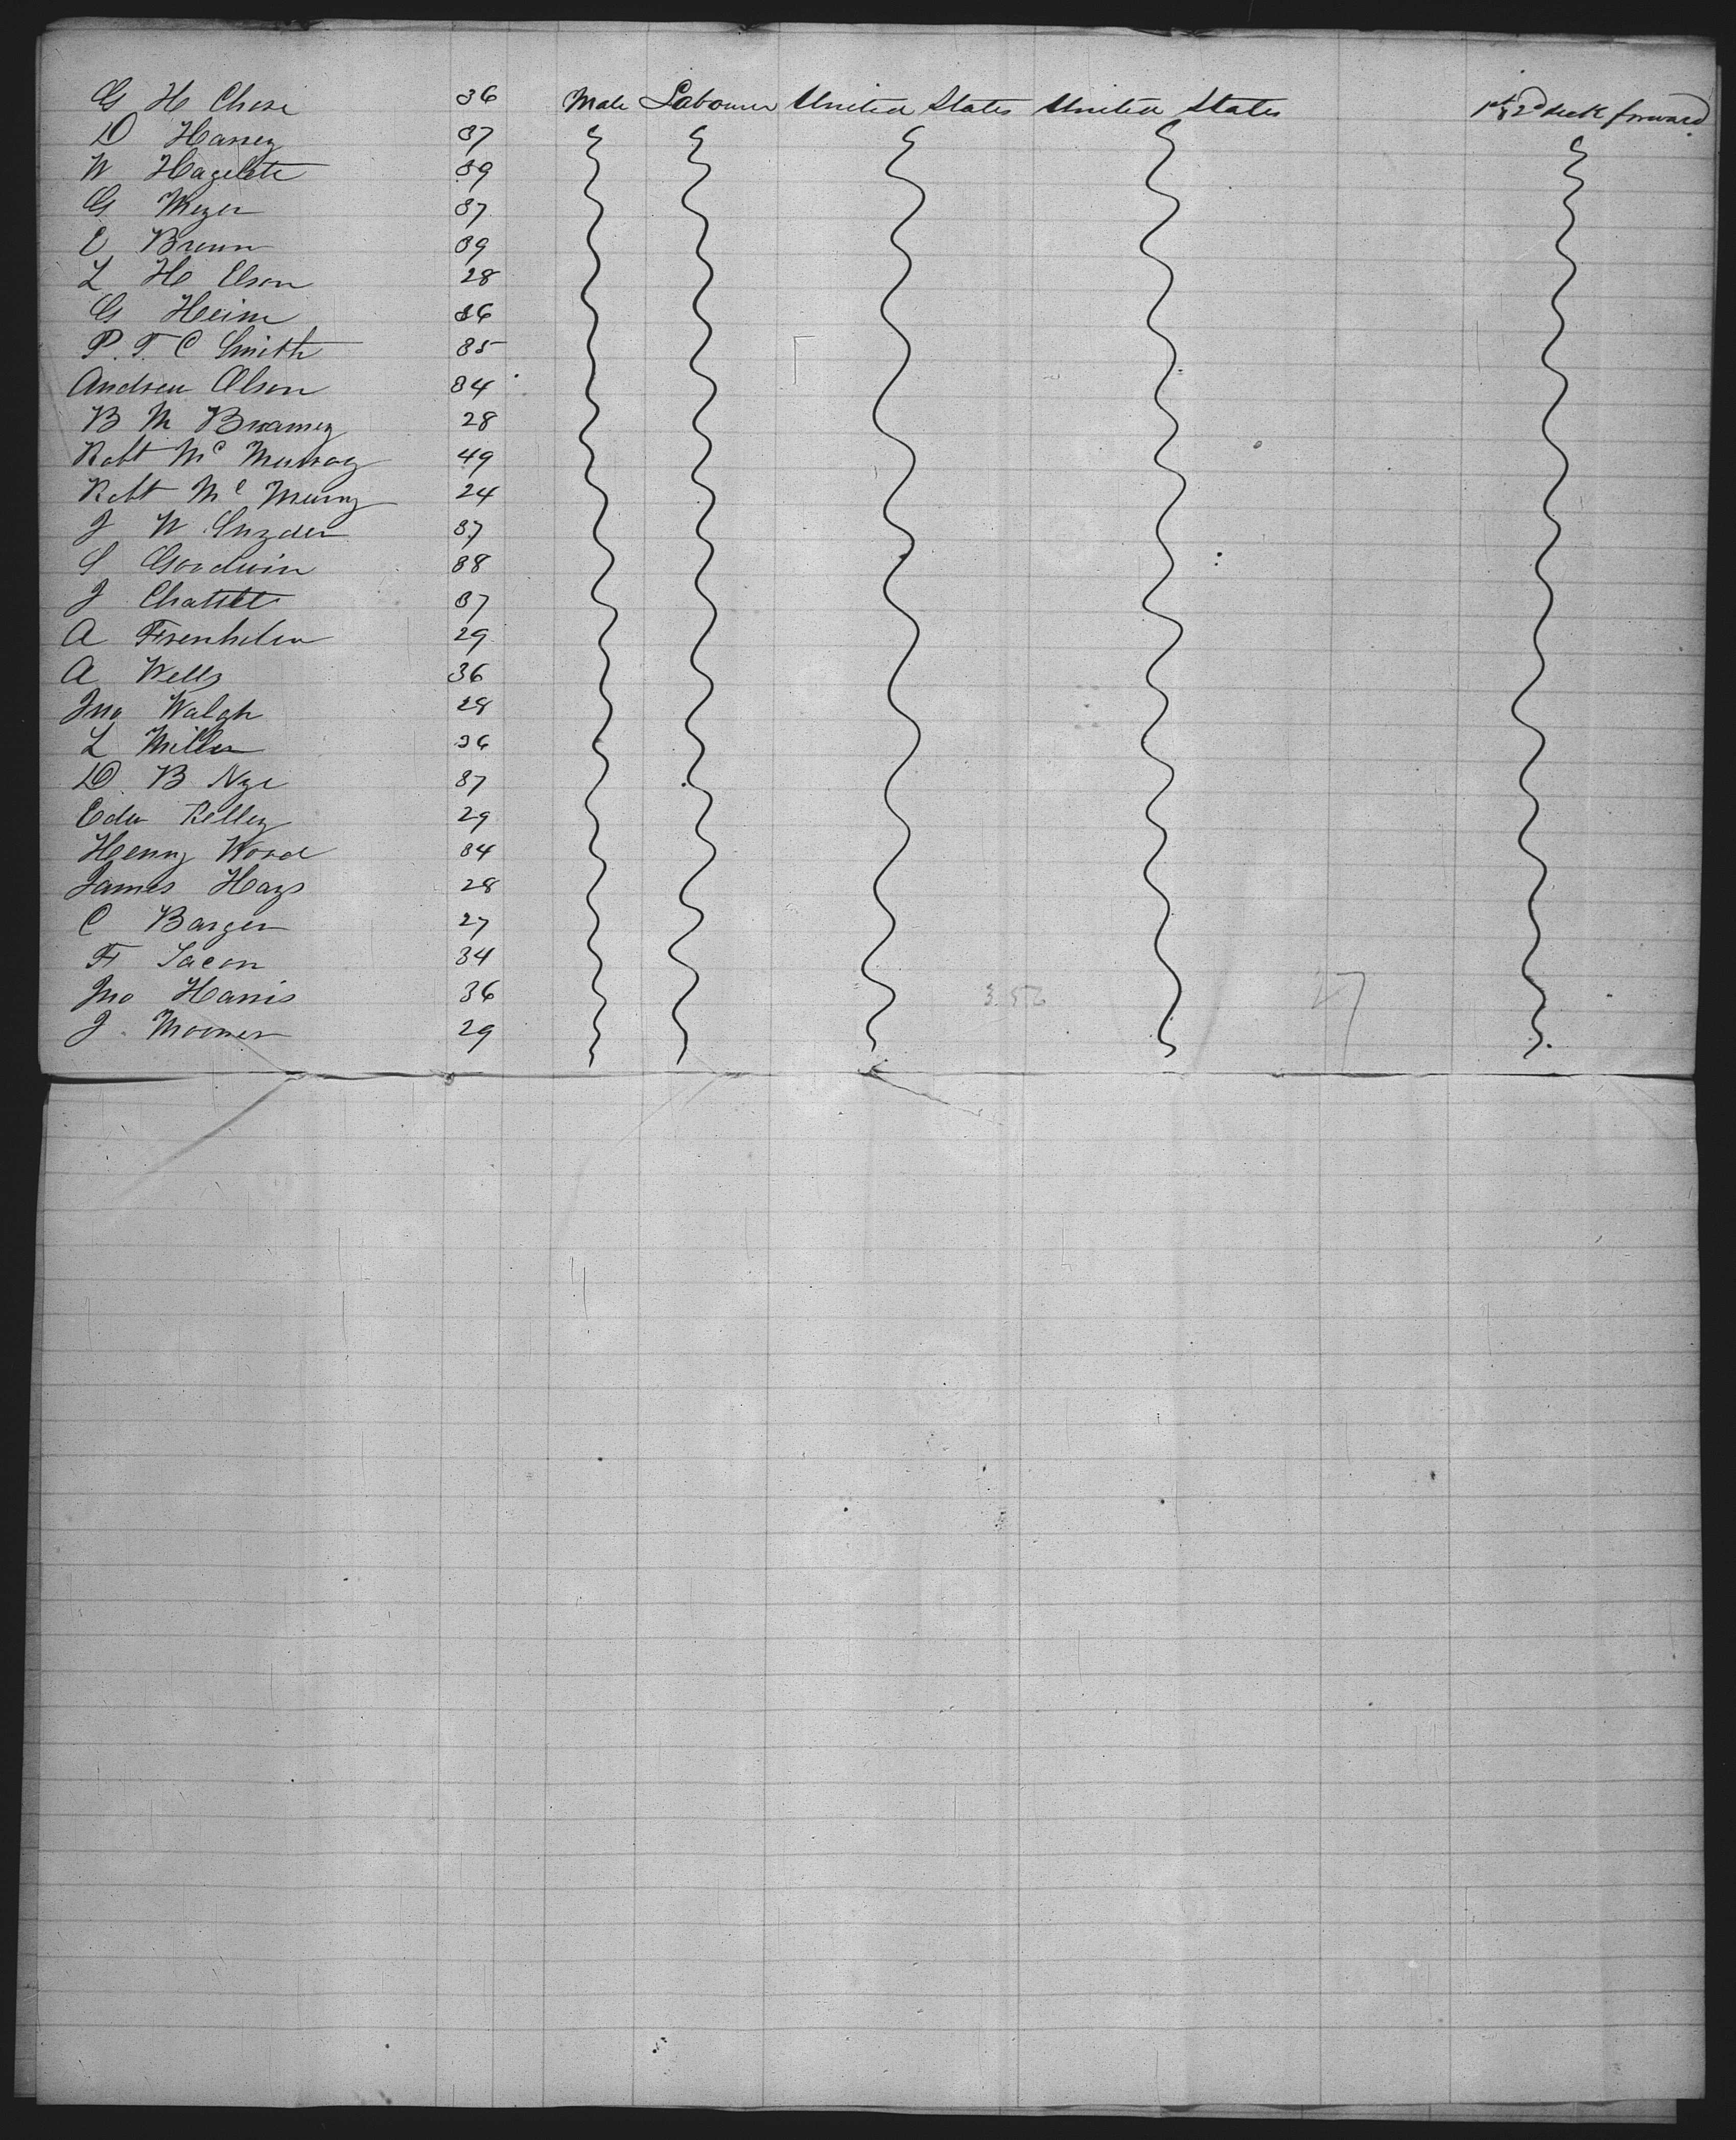 G H Chase 36 Male Labourer United States United States 1st & 2d deck forward
D Harvey 37
W Hazeltt 39
G Meyer 37
E Brown 39
L H Elson 28
G Heim 36
P. T. C Smith 35
Andrew Olson 34
B M Bramey 28
Robt Mc Murray 49
Robt Mc Murry 24
J W Snyder 37
S Goodwin 38
J 37
A Frenholm 29
A Wells 36
Jno Walsh 28
L Miller 36
D. B Nye 37
Edw Kelley 29
Henry Wood 34
James Hays 28
C Barger 27
F 34
Jno Harris 36
J. Mooner 29